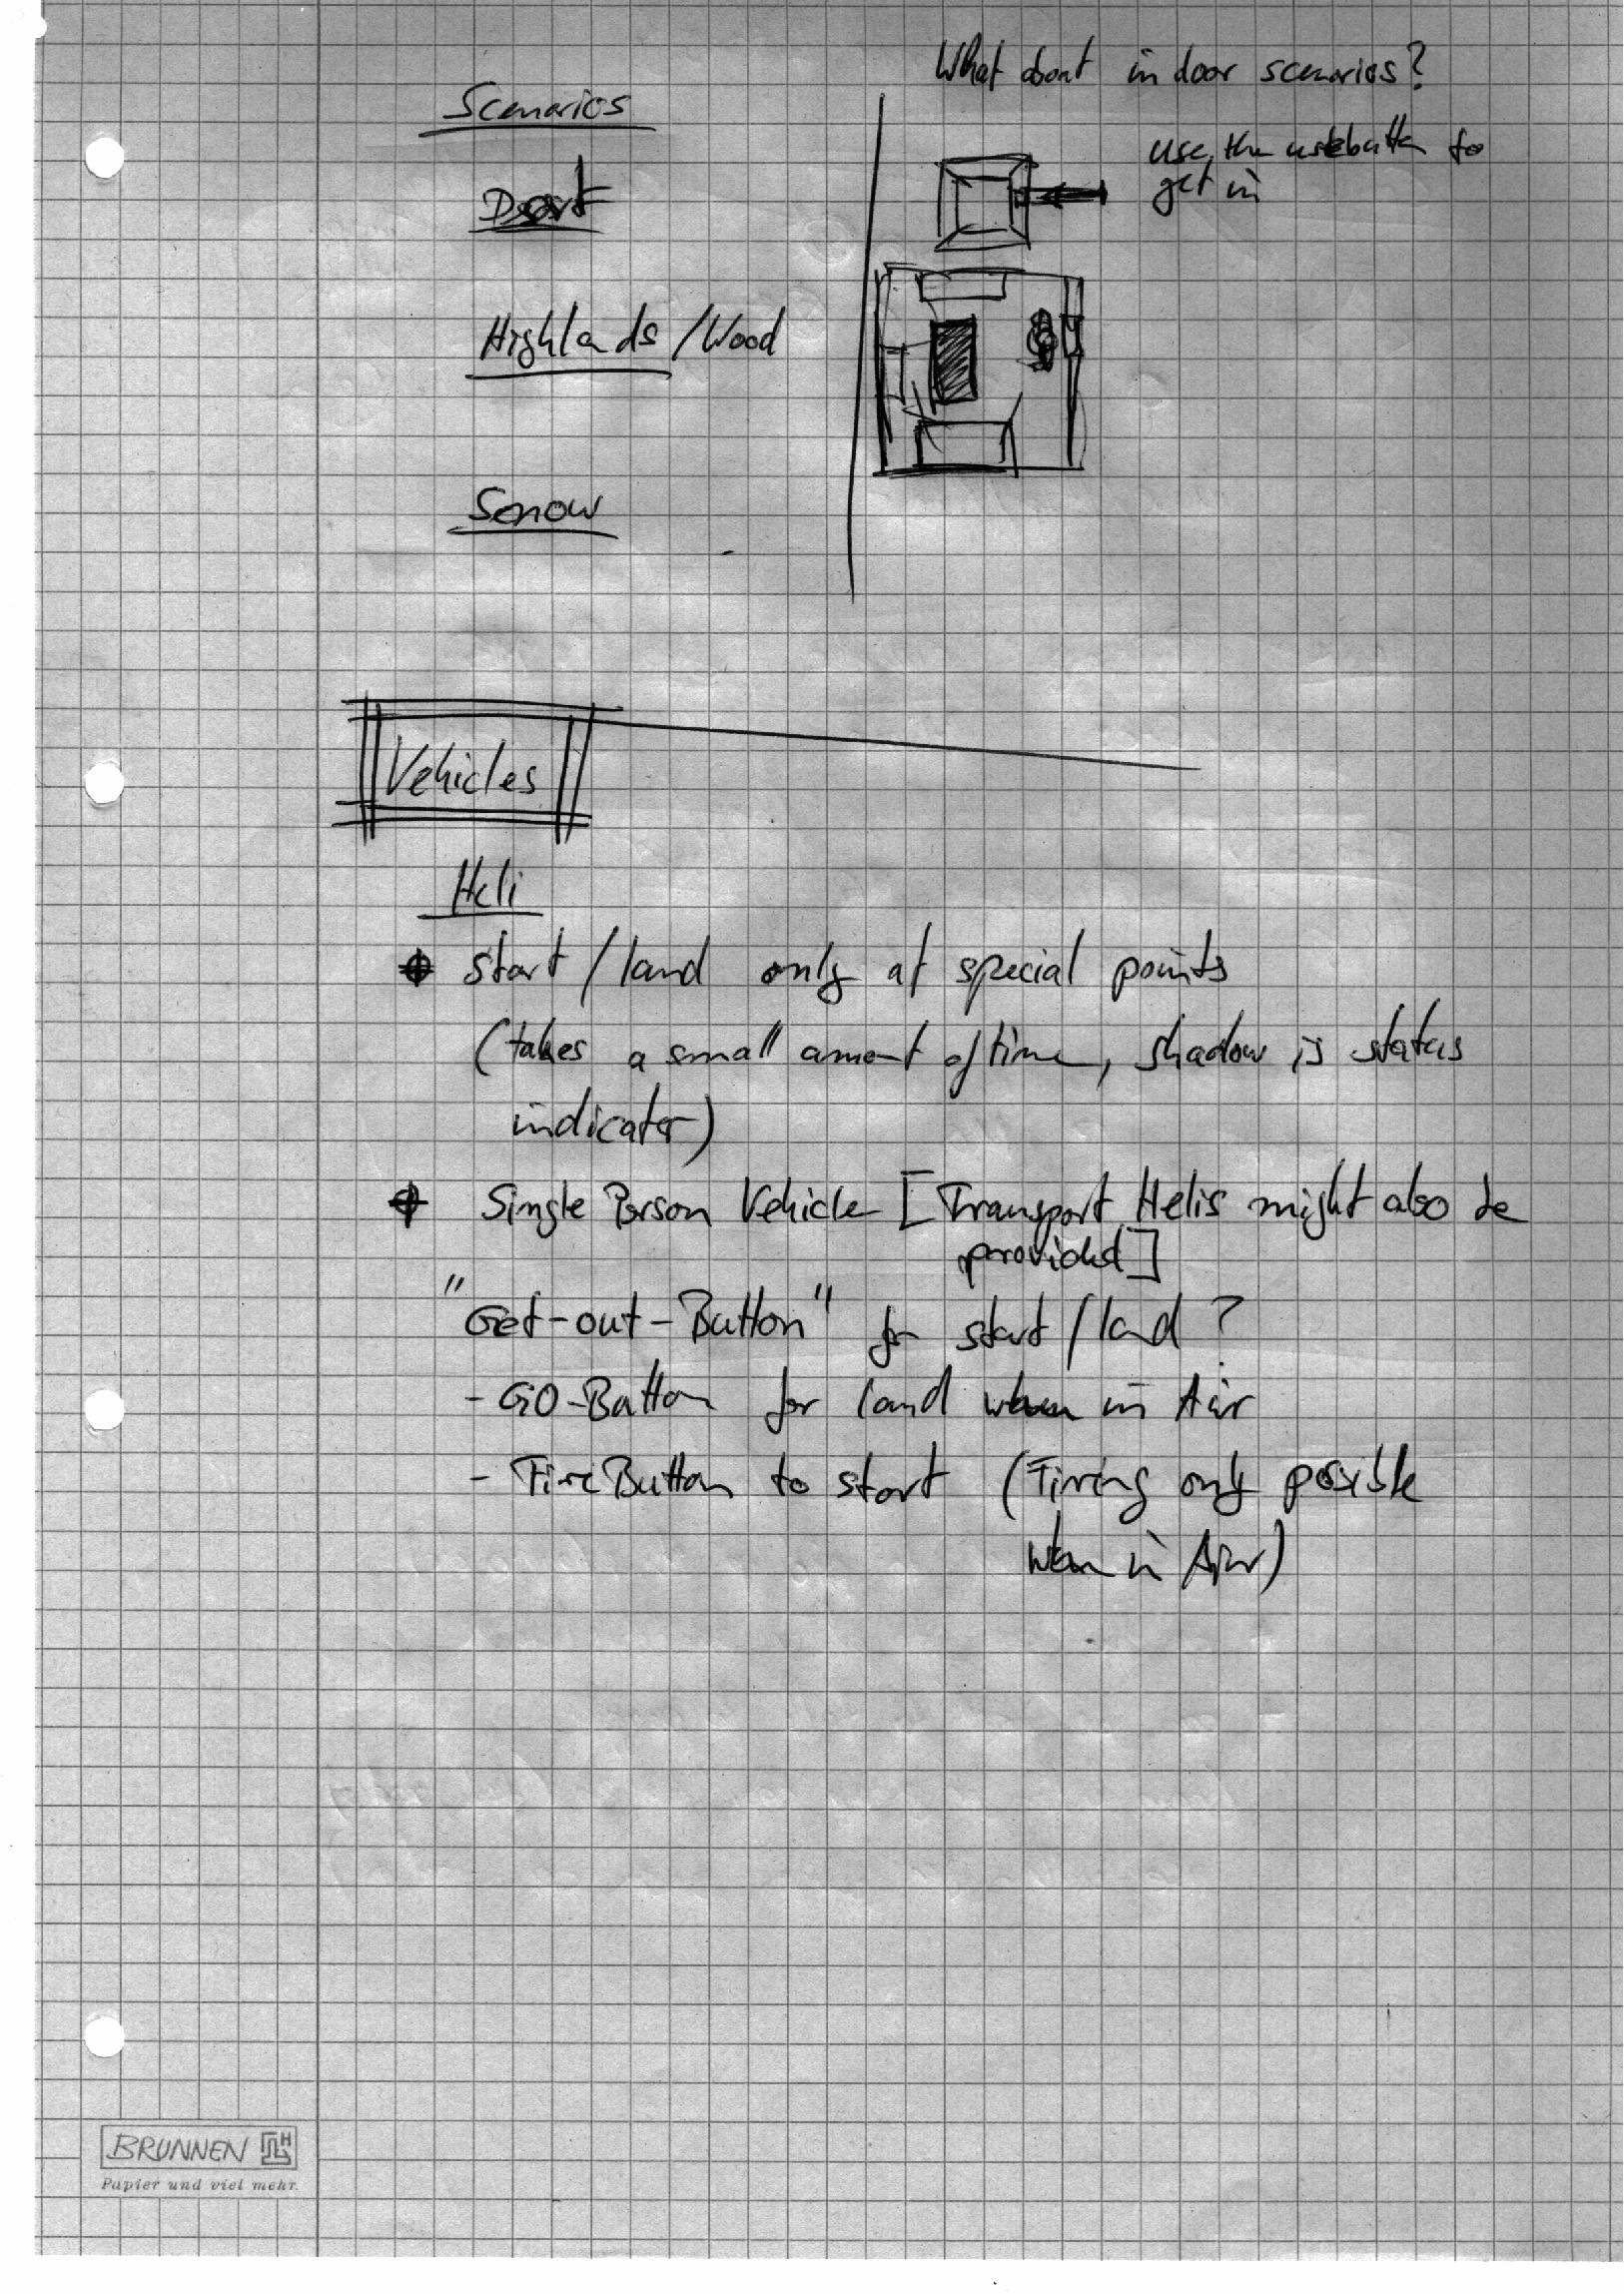 Scenarios
Desert
Highlands/Wood
Sonow
What about in door scenarios?
use the usebutton to
get in
Vehicles
Heli
start/land only at special points
(takes a small amount of time, shadow is status
indicator)
Single Person Vehicle [Transport Helis might also be
provided]
"Get-out-Button" for start/land?
- GO-Button for land when in Air
- FireButton to start (Firing only posible
when in Air)
BRUNNEN
Papier und viel mehr.